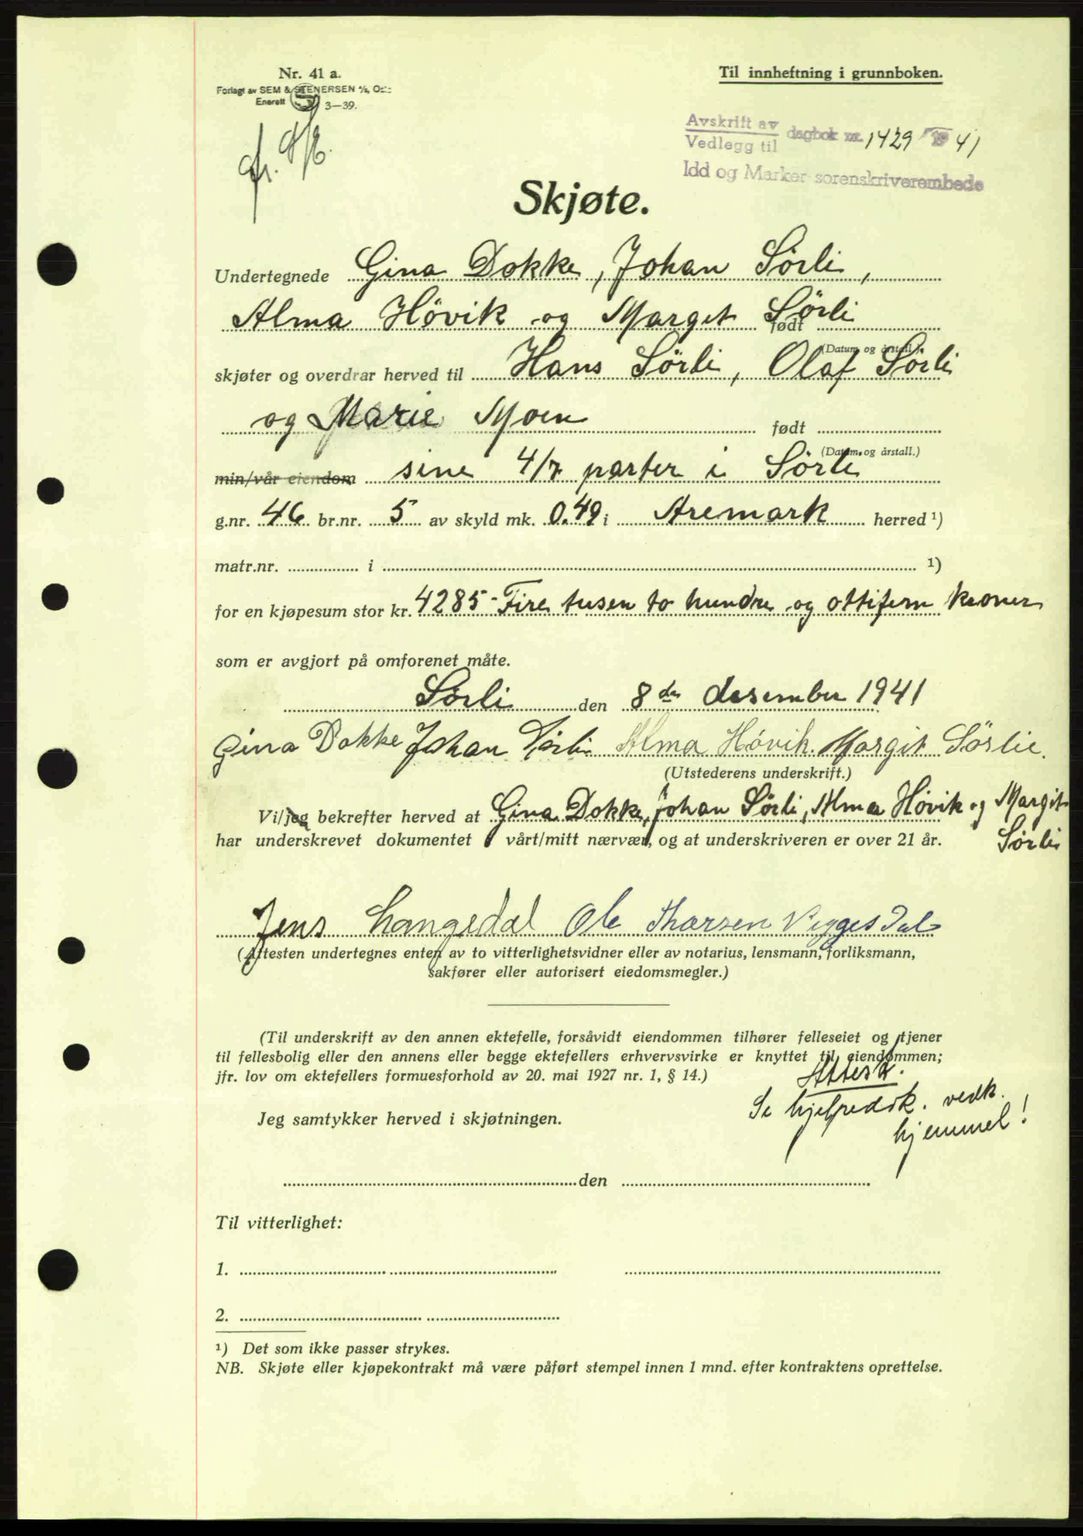 Nr. 41 a.
Til innheftning i grunnboken.
Forlagt av SEM & STENERSEN A/S, Oslo
Enerett 3—39.
Avskrift av
Vedlegg til dagbok nr. 1429 19 41
Idd og Marker sorenskriverembede
Skjøte.
Undertegnede Gina Dokke, Johan Sørli,
Alma Høvik og Margit Sørli født
(Datum og årstall.)
skjøter og overdrar herved til Hans Sørli, Olaf Sørli
og Marie Moen født
(Datum og årstall.)
min/vår eiendom sine 4/7 parter i Sørli
g.nr. 46 br.nr. 5 av skyld mk. 0.49 i Aremark herred ¹)
matr.nr. i ¹)
for en kjøpesum stor kr. 4285- Fire tusen to hundre og ottifem kroner
som er avgjort på omforenet måte.
Sørli den 8de desember 1941
Gina Dokke Johan Sørli Alma Høvik. Margit Sørlie.
(Utstederens underskrift.)
Vi/jeg bekrefter herved at Gina Dokke, Johan Sørli, Alma Høvik og Margit
Sørli
har underskrevet dokumentet i vårt/mitt nærvær, og at underskriveren er over 21 år.
Jens Langedal Ole Thorsen Viggesdal
(Attesten undertegnes enten av to vitterlighetsvidner eller av notarius, lensmann, forliksmann,
sakfører eller autorisert eiedomsmegler.)
(Til underskrift av den annen ektefelle, forsåvidt eiendommen tilhører felleseiet og tjener
til fellesbolig eller den annens eller begge ektefellers erhvervsvirke er knyttet til eiendommen;
jfr. lov om ektefellers formuesforhold av 20. mai 1927 nr. 1, § 14.)
Attest.
Se vedk.
hjemmel!
Jeg samtykker herved i skjøtningen.
den
Til vitterlighet:
1.
2.
¹) Det som ikke passer strykes.
NB. Skjøte eller kjøpekontrakt må være påført stempel innen 1 mnd. efter kontraktens oprettelse.